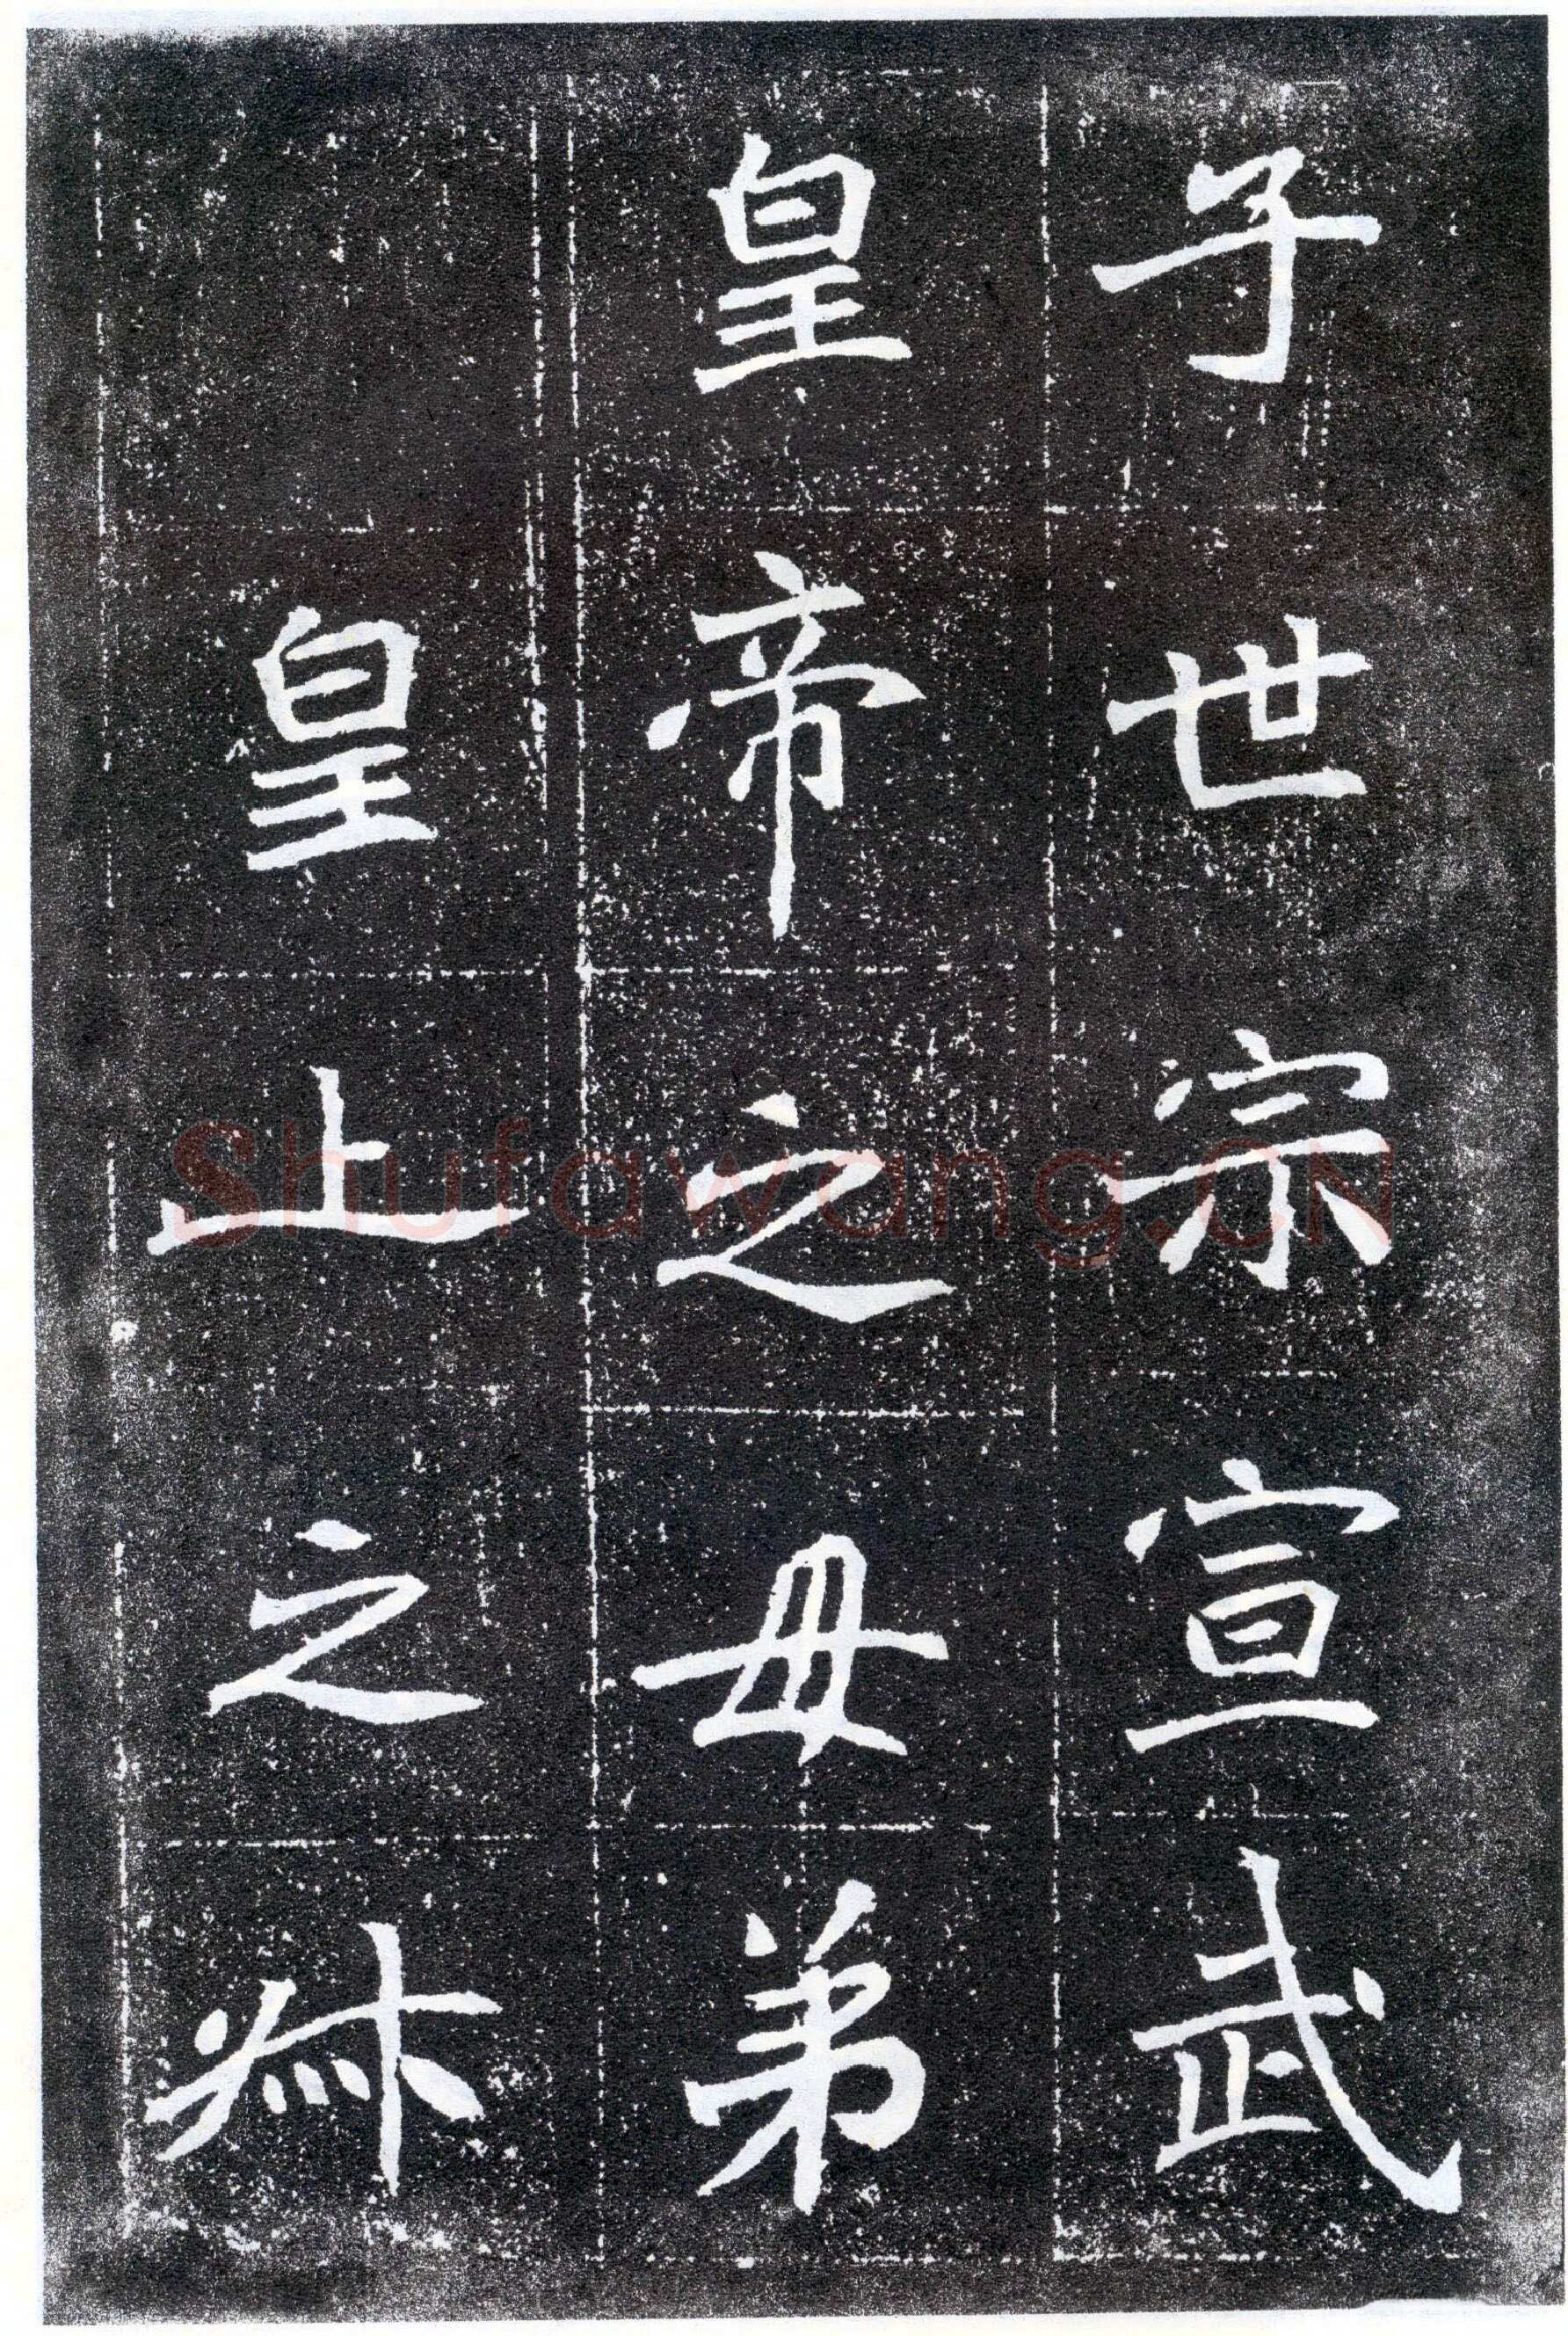 子世宗宣武
皇帝之母弟
皇上之叔
Shufawang.CN